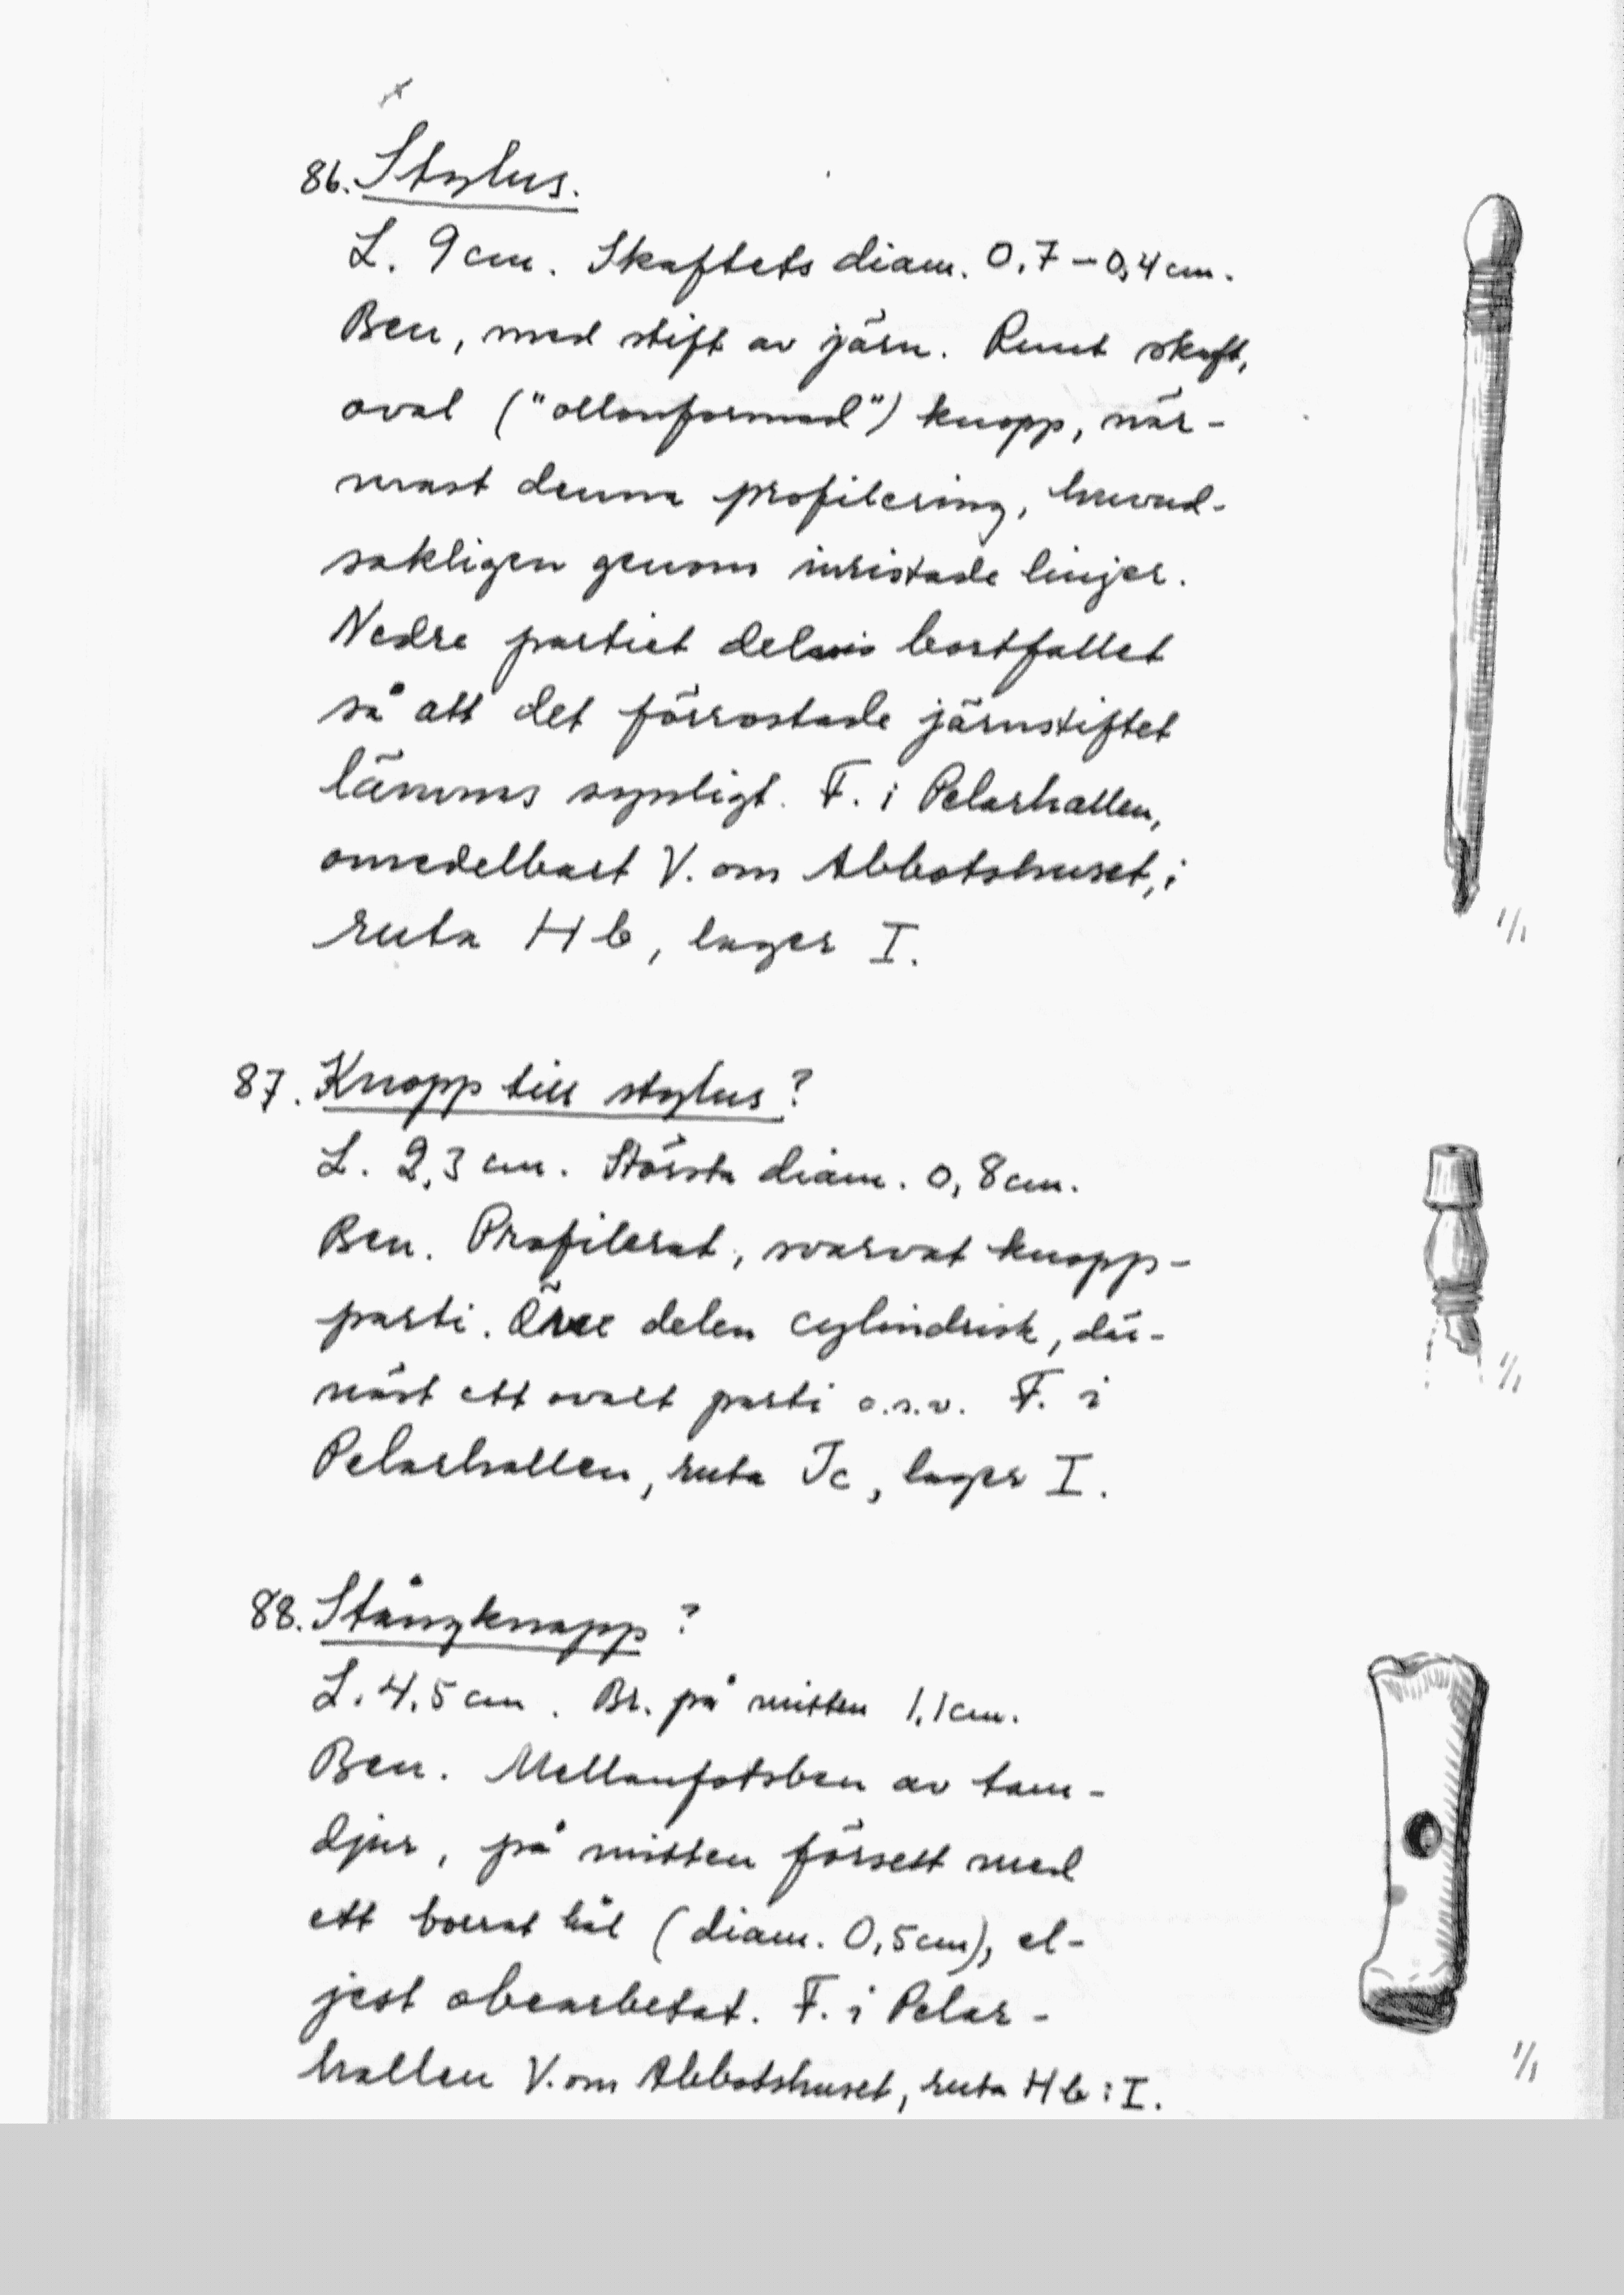 x
86. Stylus.
L. 9 cm. Skaftets diam. 0,7 – 0,4 cm.
Ben, med stift av järn. Runt skaft,
oval ("ollonformad") knopp, när-
mast denna profilering, huvud-
sakligen genom inristade linjer.
Nedre partiet delvis bortfallet
så att det förrostade järnstiftet
lämnas synligt. F. i Pelarhallen,
omedelbart V. om Abbotshuset, i
ruta H b, lager I.
87. Knopp till stylus?
L. 2,3 cm. Största diam. 0,8 cm.
Ben. Profilerat, svarvat knopp-
parti. Övre delen cylindrisk, där-
näst ett ovalt parti o.s.v. F. i
Pelarhallen, ruta Jc, lager I.
88. Stångknapp?
L. 4,5 cm. Br. på mitten 1,1 cm.
Ben. Mellanfotsben av tam-
djur, på mitten försett med
ett borrat hål (diam. 0,5 cm), el-
jest obearbetat. F. i Pelar-
hallen V. om Abbotshuset, ruta H b : I.
1/1
1/1
1/1